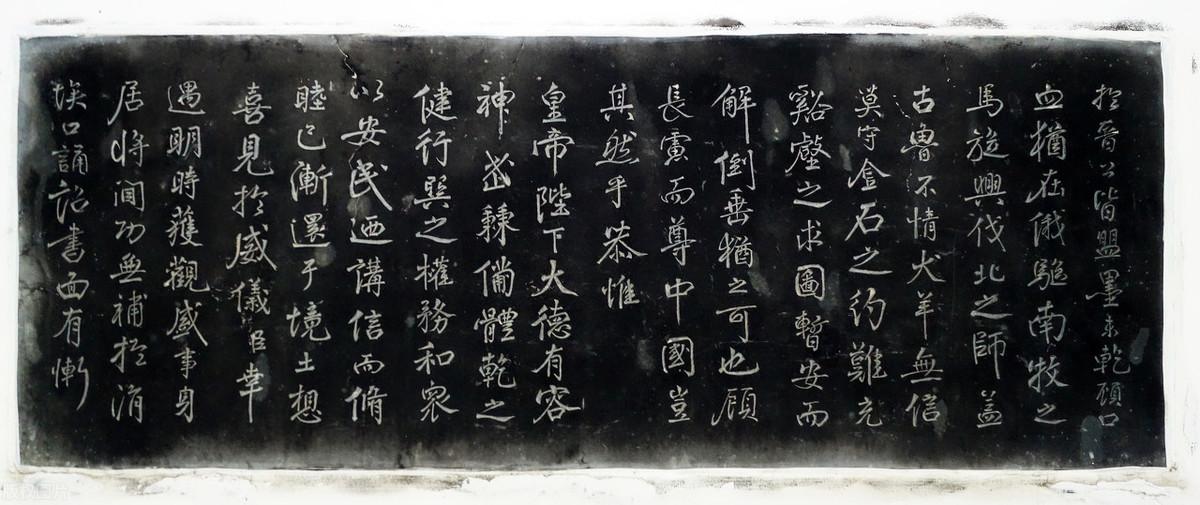 於晉公皆盟墨未乾顧口
血猶在俄驅南牧之
馬旋興伐北之師蓋
古魯不情犬羊無信
莫守金石之約難充
谿壑之求圖暫安而
解倒垂猶之可也顧
長慮而尊中國豈
其然乎恭惟
皇帝陛下大德有容
神武備體乾之
健行巽之權務和眾
以安民迺講信而脩
睦已漸還于境土想
喜見於威儀臣幸
遇明時獲觀盛事身
居將閫功無補於涓
埃口誦詔書面有慚